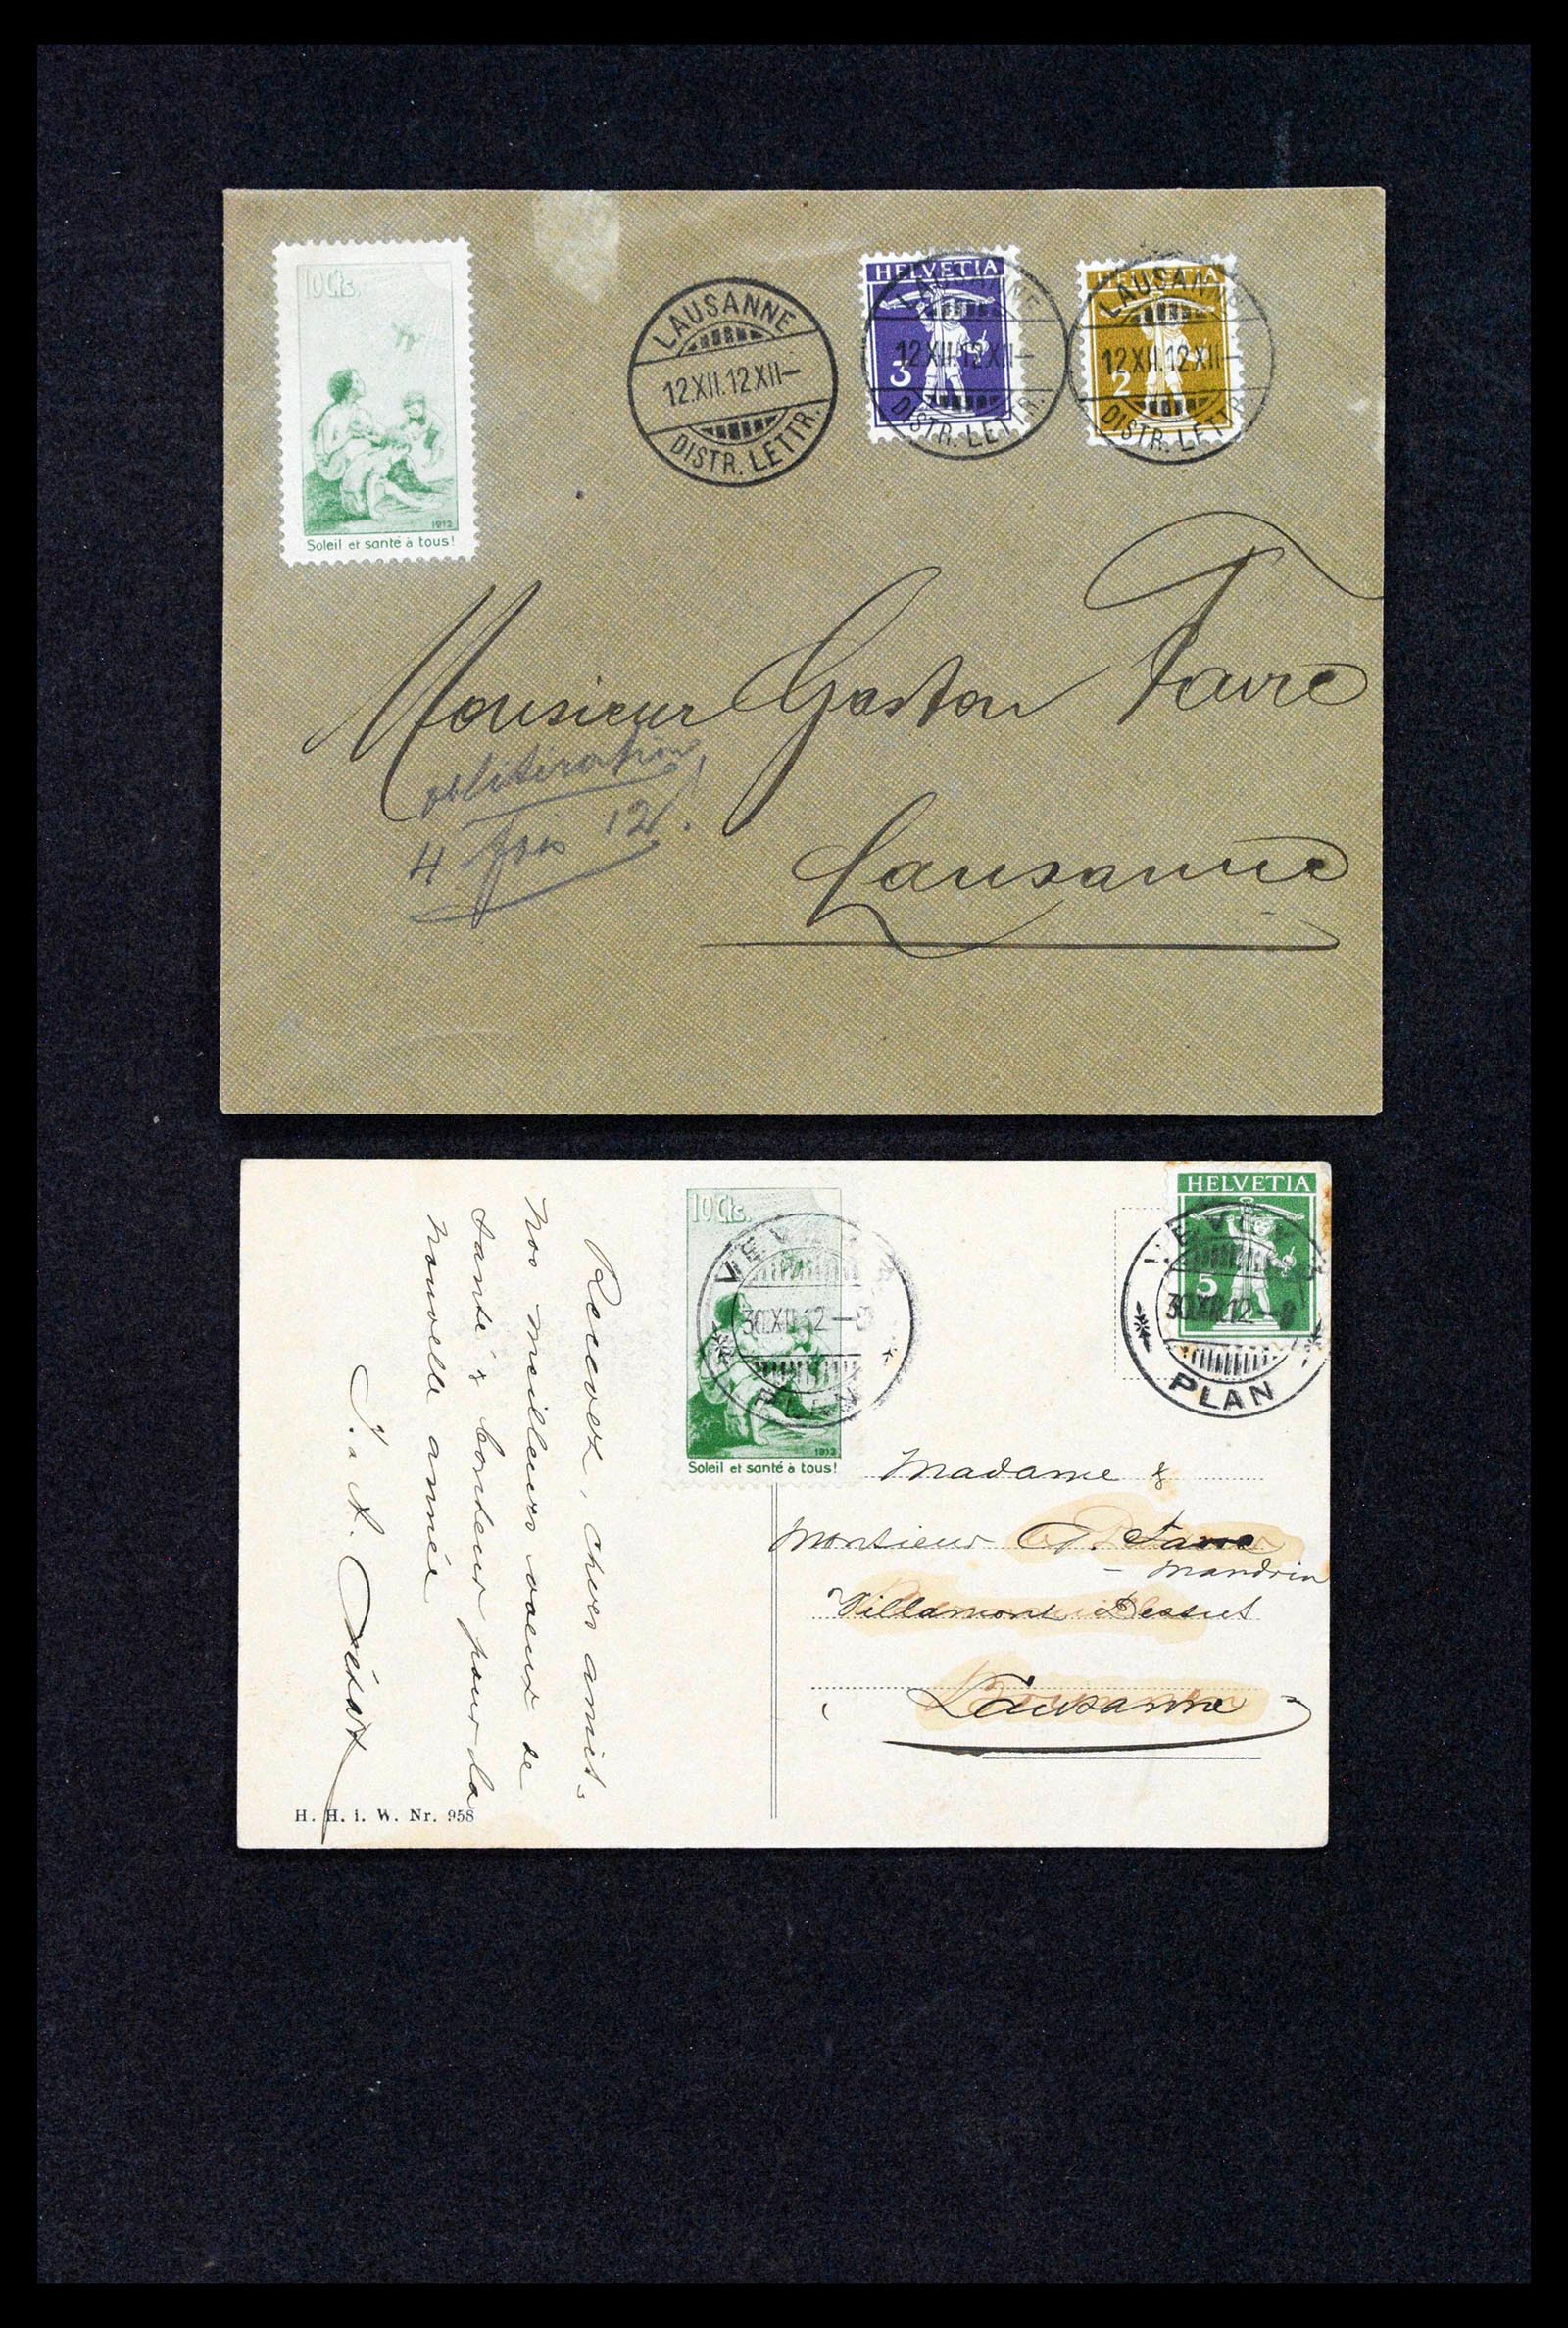 10 Cts.
1912
Soleil et santé à tous!
LAUSANNE
12.XII.12 XII–
DISTR. LETTR.
HELVETIA
3
LAUSANNE
12.XII.12 XII–
DISTR. LETTR.
HELVETIA
2
LAUSANNE
12.XII.12 XII–
DISTR. LETTR.
Monsieur Gaston Favre
oblitération
4 fois 12!
Lausanne
Recevez, chers amis,
nos meilleurs vœux de
santé & bonheur pour la
nouvelle année
H. H. i. W. Nr. 958
10 Cts.
VEVEY
30.XII.12–
PLAN
1912
Soleil et santé à tous!
HELVETIA
5
VEVEY
30.XII.12–
PLAN
Madame &
Monsieur Favre
- Mandrin
Villamont Dessus
Lausanne